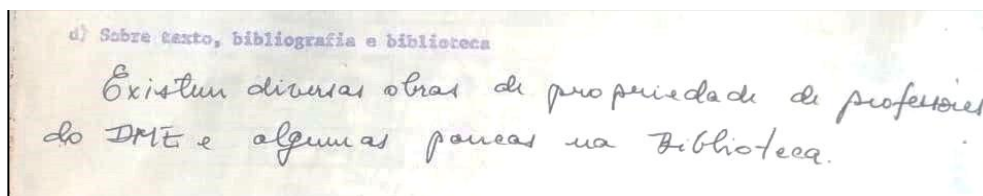 d) Sobre texto, bibliografia e biblioteca
Existem diversas obras de propriedade de professores
do DME e algumas poucas na Biblioteca.